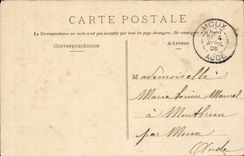 CARTE POSTALE
La Correspondance au recto n'est pas acceptée par tous les pays étrangers. (Se renseigner)
Correspondance
Adresse
MOUX
AUDE
Mademoiselle
Marie Louise
à Montbrun
par Moux
Aude